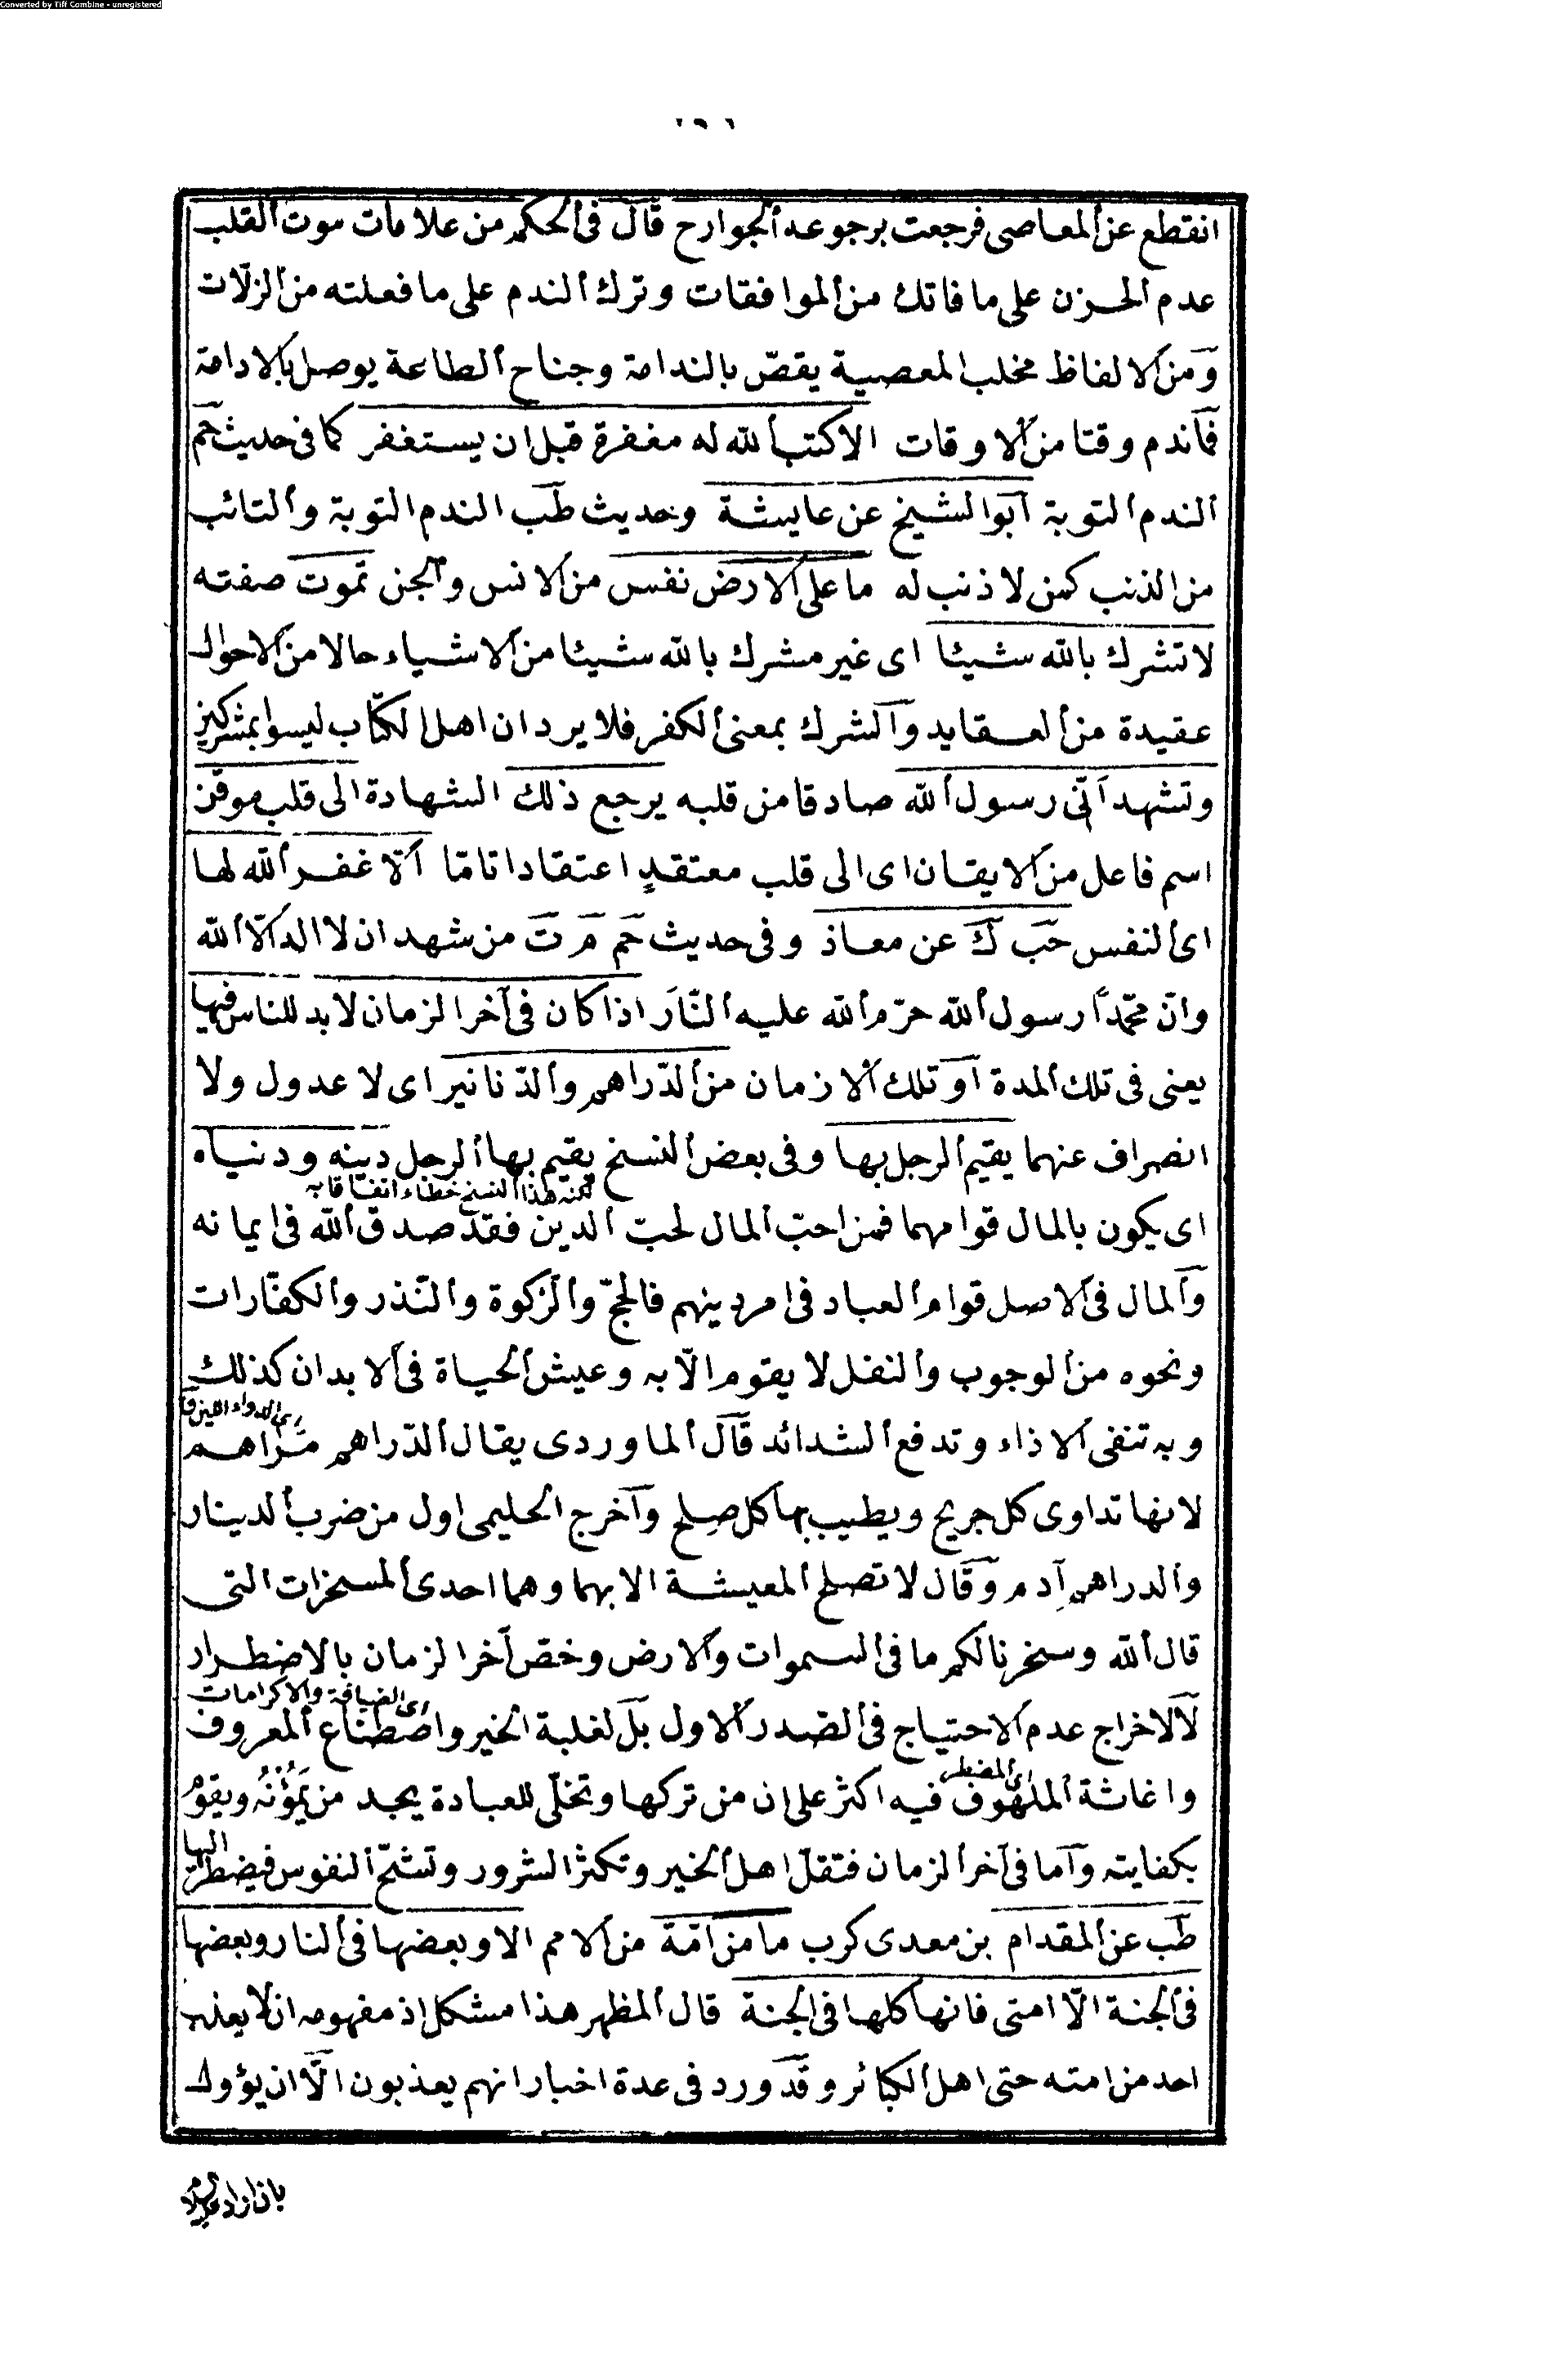 Converted by Tiff Combine - unregistered
انقطع عن المعاصى فرجعت برجوعه الجوارح قال فى الحكم من علامات موت القلب
عدم الحزن على ما فاتك من الموافقات وترك الندم على ما فعلته من الزلات
ومن الالفاظ مخلب المعصية يقصّ بالندامة وجناح الطاعة يوصل بالادامة
فاندم وقتا من الاوقات الا كتب الله له مغفرة قبل ان يستغفر كما فى حديث حم
الندم التوبة ابو الشيخ عن عايشة وحديث طب الندم التوبة والتائب
من الذنب كمن لا ذنب له ما على الارض نفس من الانس والجن تموت صفته
لا تشرك بالله شيئا اى غير مشرك بالله شيئا من الاشياء حالا من الاحوال
عقيدة من العقايد والشرك بمعنى الكفر فلا يرد ان اهل الكتاب ليسوا بمشركين
وتشهد انّى رسول الله صادقا من قلبه يرجع ذلك الشهادة الى قلب موقن
اسم فاعل من الايقان اى الى قلب معتقدٍ اعتقادا تامّا الّا غفر الله لها
اى النفس حب ك عن معاذ وفى حديث حم م ت من شهد ان لا اله الّا الله
وانّ محمّداً رسول الله حرّم الله عليه النّار اذا كان فى آخر الزمان لا بد للناس فيها
يعنى فى تلك المدة او تلك الازمان من الدّراهم والدّنانير اى لا عدول ولا
انصراف عنهما يقيم الرجل بها وفى بعض النسخ يقيم بها الرجل دينه ودنياه
لكنه هذا النسخ خطاء اتفاقا به
اى يكون بالمال قوامهما فمن احبّ المال لحبّ الدين فقد صدق الله فى ايمانه
والمال فى الاصل قوام العباد فى امر دينهم فالحجّ والزكوة والنّذر والكفّارات
ونحوه من الوجوب والنفل لا يقوم الّا به وعيش الحياة فى الابدان كذلك
وبه تنفى الاذاء وتدفع الشدائد قال الماوردى يقال الدّراهم مراهم
لانها تداوى كل جريح ويطيب بها كل صلح واخرج الحليمى اول من ضرب الدينار
والدراهم آدم وقال لا تصلح المعيشة الا بهما وهما احدى المسخرات التى
قال الله وسخرنا لكم ما فى السموات والارض وخصّ آخر الزمان بالاضطرار
اى الضيافة والاكرامات
لا لاخراج عدم الاحتياج فى الصدر الاول بل لغلبة الخير واصطناع المعروف
اى المضطر
واغاثة الملهوف فيه اكثر على ان من تركها وتخلّى للعبادة يجد من يَمُؤُنُه ويقوم
بكفايته واما فى آخر الزمان فتقلّ اهل الخير وتكثر الشرور وتشحّ النفوس فيضطر اليها
طب عن المقدام بن معدى كرب ما من امّة من الامم الا وبعضها فى النار وبعضها
فى الجنة الّا امتى فانها كلها فى الجنة قال المظهر هذا مشكل اذ مفهومه ان لا يعذب
احد من امته حتى اهل الكبائر وقد ورد فى عدة اخبار انهم يعذبون الّا ان يؤول
بان اراد